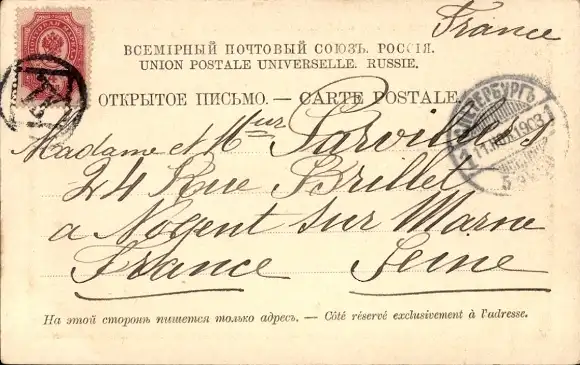 France
ВСЕМІРНЫЙ ПОЧТОВЫЙ СОЮЗЪ. РОССІЯ.
UNION POSTALE UNIVERSELLE. RUSSIE.
ОТКРЫТОЕ ПИСЬМО. — CARTE POSTALE.
Madame et Msur
24 Rue Brillet
a Nogent sur Marne
France Seine
На этой сторонѣ пишется только адресъ. — Côté réservé exclusivement à l'adresse.